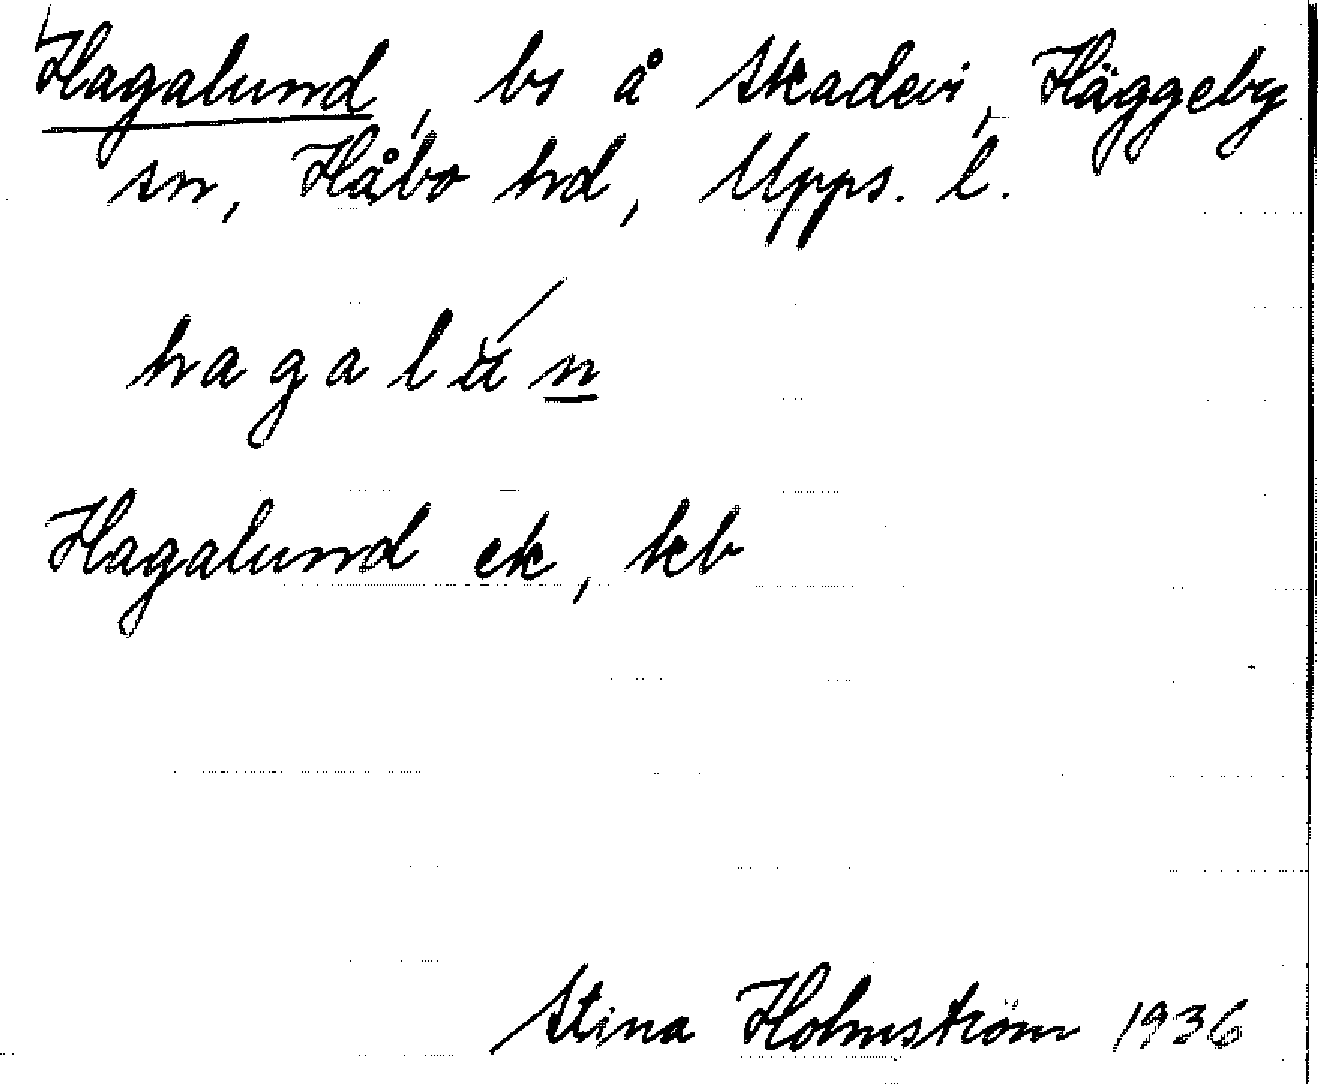 Hagalund, bs å Skadevi, Häggeby
sn, Håbo hd, Upps. l.
hagalún
Hagalund ek, kb
Stina Holmström 1936